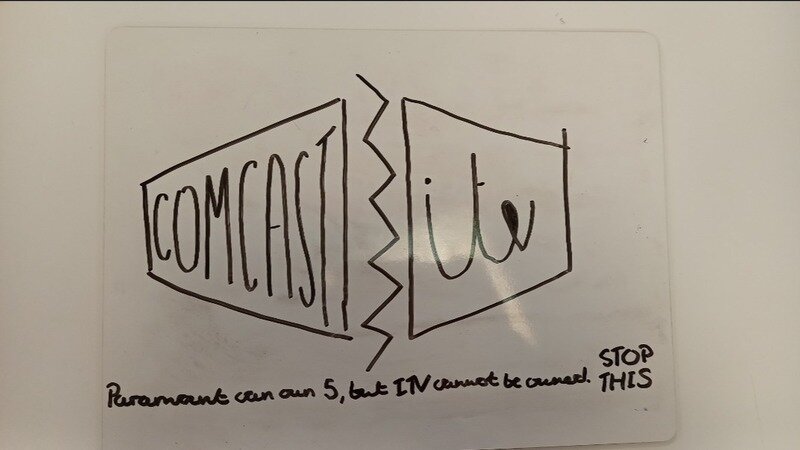 COMCAST
itv
Paramount can own 5, but ITV cannot be owned.
STOP
THIS